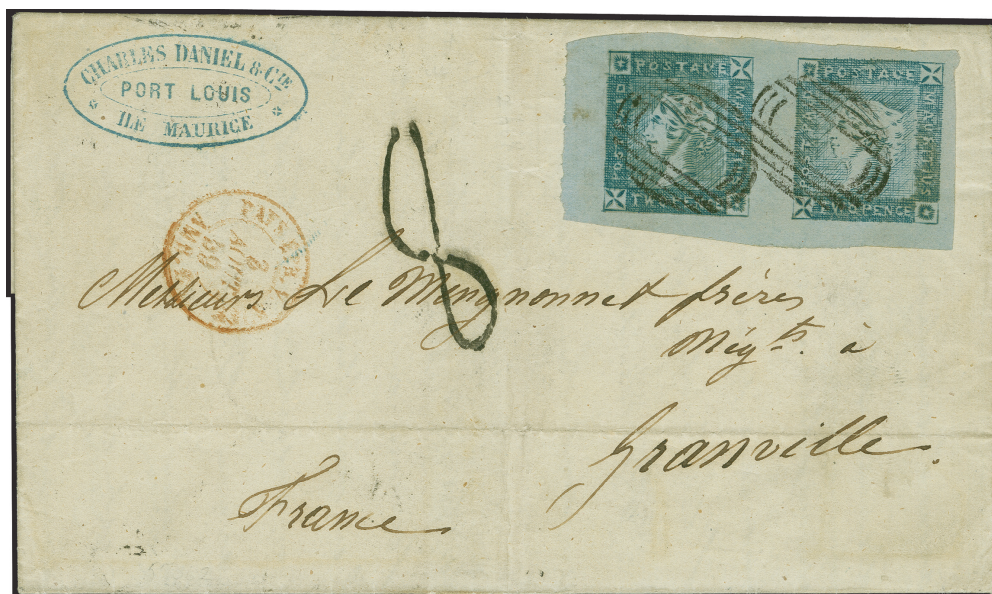 CHARLES DANIEL & Cie
PORT LOUIS
ILE MAURICE
POSTAGE
TWO PENCE
POSTAGE
MAURITIUS
TWO PENCE
8
PAYS ETR.
3
AOUT
59
Messieurs Le Mengnonnet frères
Négts. à
Granville.
France